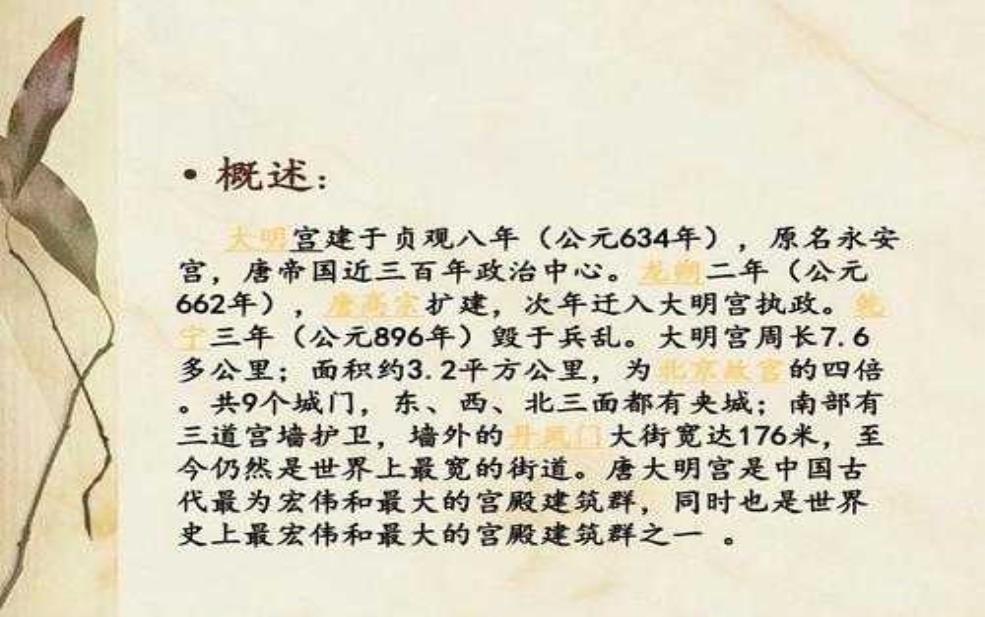 • 概述：
大明宫建于贞观八年（公元634年），原名永安
宫，唐帝国近三百年政治中心。龙朔二年（公元
662年），唐高宗扩建，次年迁入大明宫执政。乾
宁三年（公元896年）毁于兵乱。大明宫周长7.6
多公里；面积约3.2平方公里，为北京故宫的四倍
。共9个城门，东、西、北三面都有夹城；南部有
三道宫墙护卫，墙外的丹凤门大街宽达176米，至
今仍然是世界上最宽的街道。唐大明宫是中国古
代最为宏伟和最大的宫殿建筑群，同时也是世界
史上最宏伟和最大的宫殿建筑群之一 。